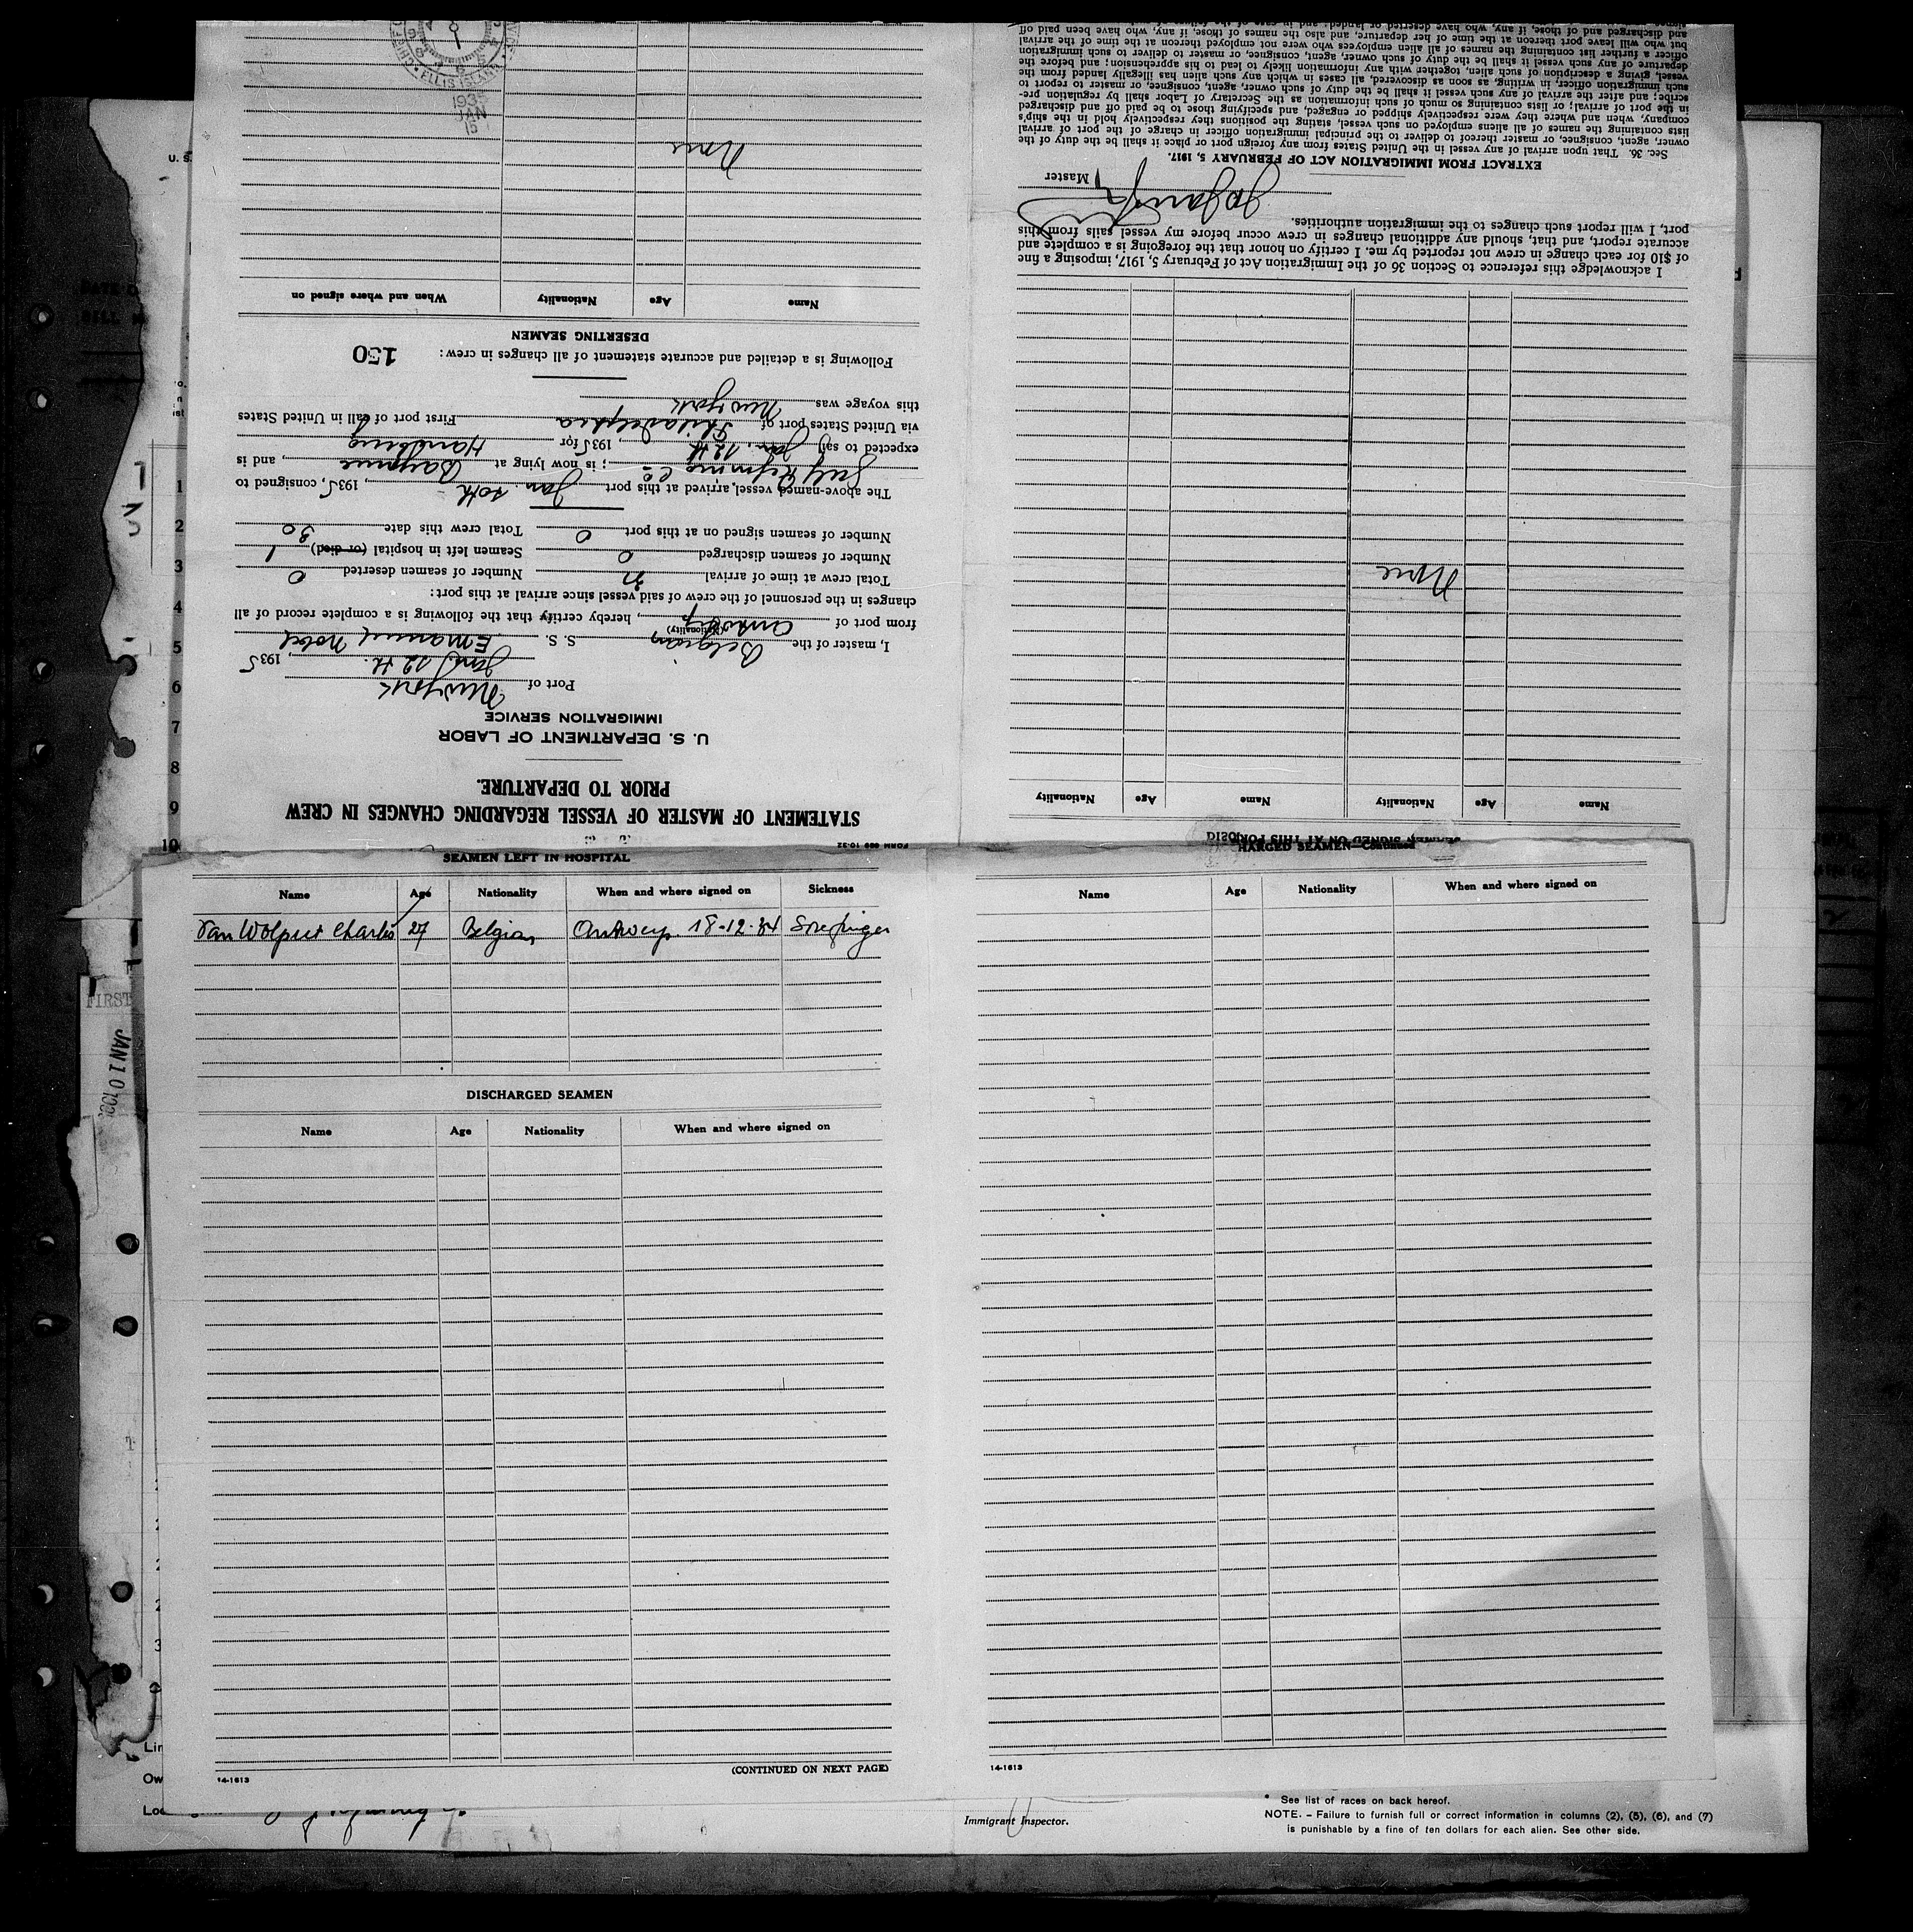 FORM 689 10-32
STATEMENT OF MASTER OF VESSEL REGARDING CHANGES IN CREW
PRIOR TO DEPARTURE.
U. S. DEPARTMENT OF LABOR
IMMIGRATION SERVICE
Port of New York
Jan. 12th, 1935
I, master of the Belgian S. S. Emanuel Nobel
(Nationality)
from port of Antwerp, hereby certify that the following is a complete record of all
changes in the personnel of the crew of said vessel since arrival at this port:
Total crew at time of arrival Number of seamen deserted 0
Number of seamen discharged 0 Seamen left in hospital (or died) 1
Number of seamen signed on at this port 0 Total crew this date 30
The above-named vessel, arrived at this port Jan. 10th, 1935, consigned to
Gulf Refining Co; is now lying at Bayonne, and is
expected to sail Jan. 12th, 1935 for Hamburg
via United States port of Philadelphia First port of call in United States
this voyage was New York
Following is a detailed and accurate statement of all changes in crew: 150
DESERTING SEAMEN
Name Age Nationality When and where signed on
None
1935
JAN
15
ELLIS ISLAND
SEAMEN SIGNED ON AT THIS PORT
Name Age Nationality Name Age Nationality
None
I acknowledge this reference to Section 36 of the Immigration Act of February 5, 1917, imposing a fine
of $10 for each change in crew not reported by me. I certify on honor that the foregoing is a complete and
accurate report, and that, should any additional changes in crew occur before my vessel sails from this
port, I will report such changes to the immigration authorities.
Master
EXTRACT FROM IMMIGRATION ACT OF FEBRUARY 5, 1917.
Sec. 36. That upon arrival of any vessel in the United States from any foreign port or place it shall be the duty of the
owner, agent, consignee, or master thereof to deliver to the principal immigration officer in charge of the port of arrival
lists containing the names of all aliens employed on such vessel, stating the positions they respectively hold in the ship's
company, when and where they were respectively shipped or engaged, and specifying those to be paid off and discharged
in the port of arrival; or lists containing so much of such information as the Secretary of Labor shall by regulation pre-
scribe; and after the arrival of any such vessel it shall be the duty of such owner, agent, consignee, or master to report to
such immigration officer, in writing, as soon as discovered, all cases in which any such alien has illegally landed from the
vessel, giving a description of such alien, together with any information likely to lead to his apprehension; and before the
departure of any such vessel it shall be the duty of such owner, agent, consignee, or master to deliver to such immigration
officer a further list containing the names of all alien employees who were not employed thereon at the time of the arrival
but who will leave port thereon at the time of her departure, and also the names of those, if any, who have been paid off
and discharged and of those, if any, who have deserted or landed; and in case of the failure of
SEAMEN LEFT IN HOSPITAL
Name Age Nationality When and where signed on Sickness
Van Charles 27 Belgian Antwerp 18-12-34 Sore finger
DISCHARGED SEAMEN
Name Age Nationality When and where signed on
14-1613
(CONTINUED ON NEXT PAGE)
HARGED SEAMEN—Continued
Name Age Nationality When and where signed on
14-1613
U. S.
1
2
3
4
5
6
7
8
9
10
FIRST
JAN 10
Lin
Ow
Immigrant Inspector.
* See list of races on back hereof.
NOTE. – Failure to furnish full or correct information in columns (2), (5), (6), and (7)
is punishable by a fine of ten dollars for each alien. See other side.